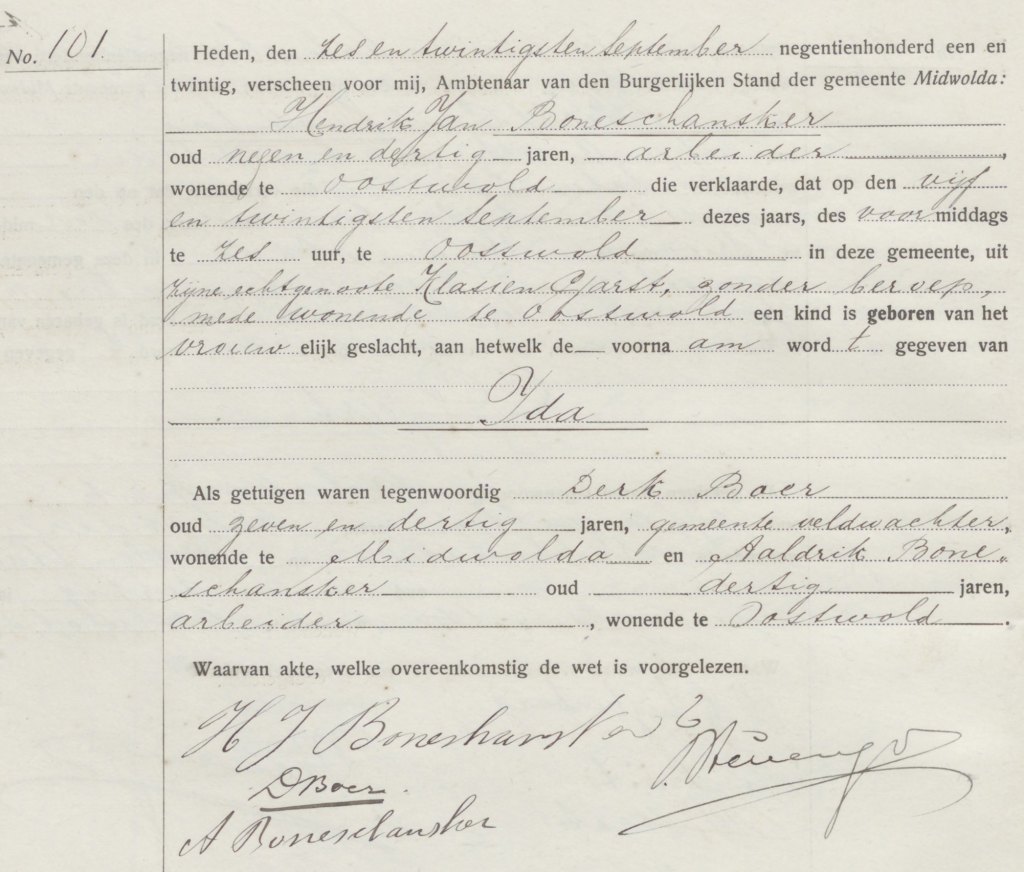 No. 101.
Heden, den zes en twintigsten September negentienhonderd een en
twintig, verscheen voor mij, Ambtenaar van den Burgerlijken Stand der gemeente Midwolda:
Hendrik Jan Boneschansker
oud negen en dertig jaren, arbeider,
wonende te Oostwold die verklaarde, dat op den vijf
en twintigsten September dezes jaars, des voormiddags
te zes uur, te Oostwold in deze gemeente, uit
zijne echtgenoote Klasien Garst, zonder beroep,
mede wonende te Oostwold een kind is geboren van het
vrouwelijk geslacht, aan hetwelk de voornaam wordt gegeven van
Ida
Als getuigen waren tegenwoordig Derk Boer
oud zeven en dertig jaren, gemeente veldwachter,
wonende te Midwolda en Aaldrik Bone„
schansker oud dertig jaren,
arbeider, wonende te Oostwold.
Waarvan akte, welke overeenkomstig de wet is voorgelezen.
H J Boneschansker
D Boer.
A Boneschansker